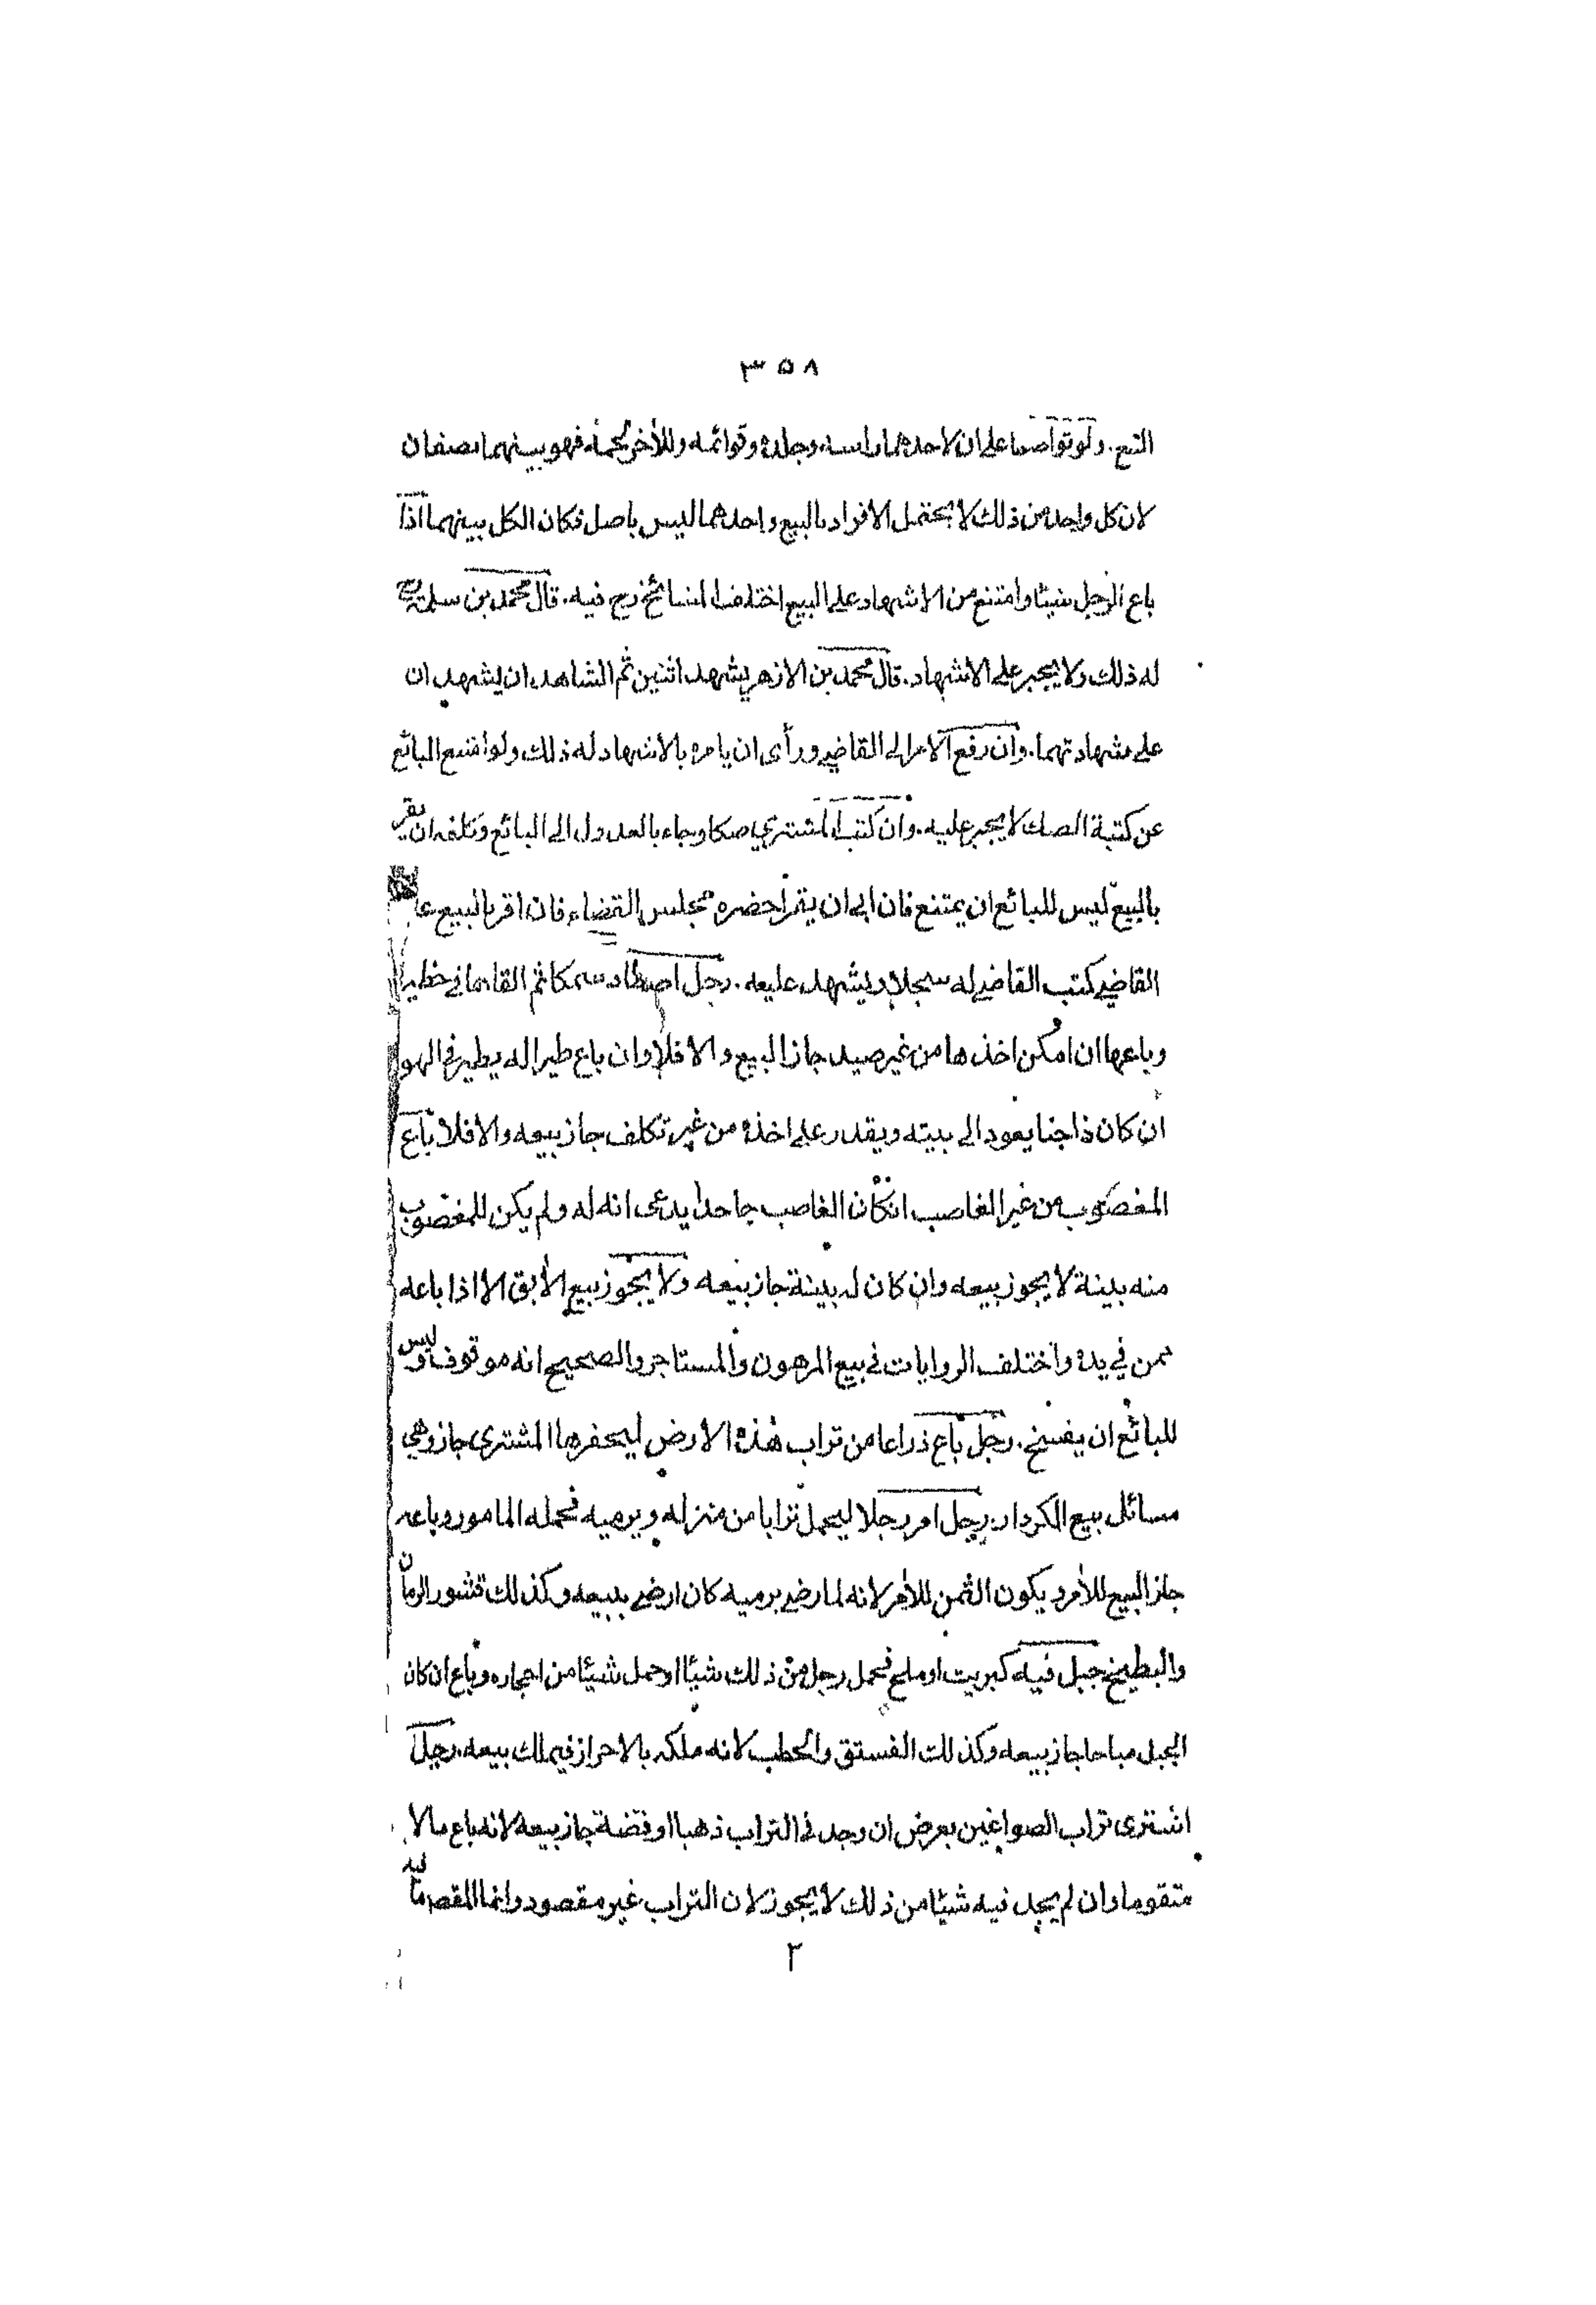 ٣٥٨
التبع. ولو تواضعا على ان لاحدهما راسه وجلده وقوائمه وللآخر لحمه فهو بينهما نصفان
لان كل واحد من ذلك لا يحتمل الافراد بالبيع واحدهما ليس باصل فكان الكل بينهما اذا
باع الرجل شيئا وامتنع من الاشهاد على البيع اختلف المشائخ رح فيه. قال محمد بن سلمة
له ذلك ولا يجبر على الاشهاد. قال محمد بن الازهر يشهد اثنين ثم الشاهدان يشهدان
على شهادتهما. وان رفع الامر الى القاضي ورأى ان يامره بالاشهاد له ذلك ولو امتنع البائع
عن كتبة الصك لا يجبر عليه. وان كتب المشتري صكا وجاء بالعدول الى البائع وتلفه ان يقر
بالبيع ليس للبائع ان يمتنع فان ابى ان يقر احضره مجلس القضاء فان اقر بالبيع عند
القاضي كتب القاضي له سجلا ويشهد عليه. رجل اصطاد سمكا ثم القاها في حظيرة
وباعها ان امكن اخذها من غير صيد جاز البيع والا فلا وان باع طيرا له يطير في الهوا
ان كان ذاجنا يعود الى بيته ويقدر على اخذه من غير تكلف جاز بيعه والا فلا باع
المغصوب من غير الغاصب ان كان الغاصب جاحدا يدعى انه له ولم يكن للمغصوب
منه بينة لا يجوز بيعه وان كان له بينة جاز بيعه ولا يجوز بيع الآبق الا اذا باعه
ممن في يده واختلف الروايات في بيع المرهون والمستاجر والصحيح انه موقوف وليس
للبائع ان يفسخ. رجل باع ذراعا من تراب هذه الارض ليحفرها المشترى جاز وهي
مسائل بيع الكردار. رجل امر رجلا ليحمل ترابا من منزله ويرميه فحمله المامور وباعه
جاز البيع للآمر ويكون الثمن للآمر لانه لما رضي برميه كان ارضى ببيعه وكذلك قشور الرمان
والبطيخ جبل فيه كبريت او ملح فحمل رجل من ذلك شيئا او حمل شيئا من احجاره وباع ان كان
الجبل مباحا جاز بيعه وكذلك الفستق والحطب لانه ملكه بالاحراز فيملك بيعه. رجل
اشترى تراب الصواغين بعرض ان وجد في التراب ذهبا او فضة جاز بيعه لانه باع مالا
متقوما وان لم يجد فيه شيئا من ذلك لا يجوز لان التراب غير مقصود وانما المقصد ما فيه
٢